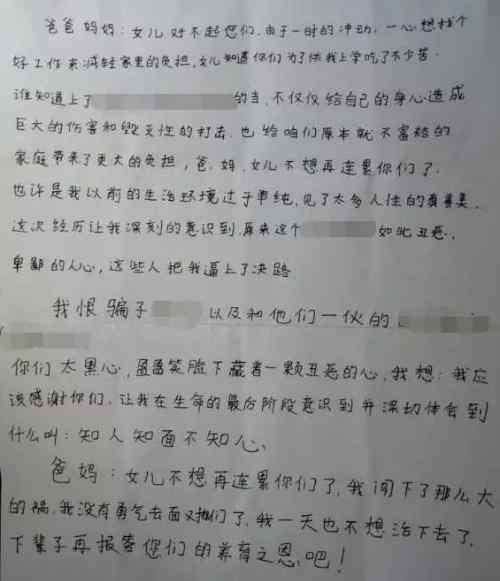 爸爸妈妈：女儿对不起您们，由于一时的冲动，一心想找个
好工作来减轻家里的负担，女儿知道你们为了供我上学吃了不少苦．
谁知道上了 的当，不仅仅给自己的身心造成
巨大的伤害和毁灭性的打击，也给咱们原本就不富裕的
家庭带来了更大的负担，爸、妈，女儿不想再连累你们了．
也许是我以前的生活环境过于单纯，见了太多人性的真善美．
这次经历让我深刻的意识到，原来这个 如此丑恶．
卑鄙的人心，这些人把我逼上了决路
我恨骗子 以及和他们一伙的
你们太黑心，盈盈笑脸下藏着一颗丑恶的心，我想：我应
该感谢你们，让我在生命的最后阶段意识到并深切体会到
什么叫：知人知面不知心、
爸妈：女儿不想再连累你们了，我闯下了那么大
的祸，我没有勇气去面对你们了，我一天也不想活下去了，
下辈子再报答您们的养育之恩吧！